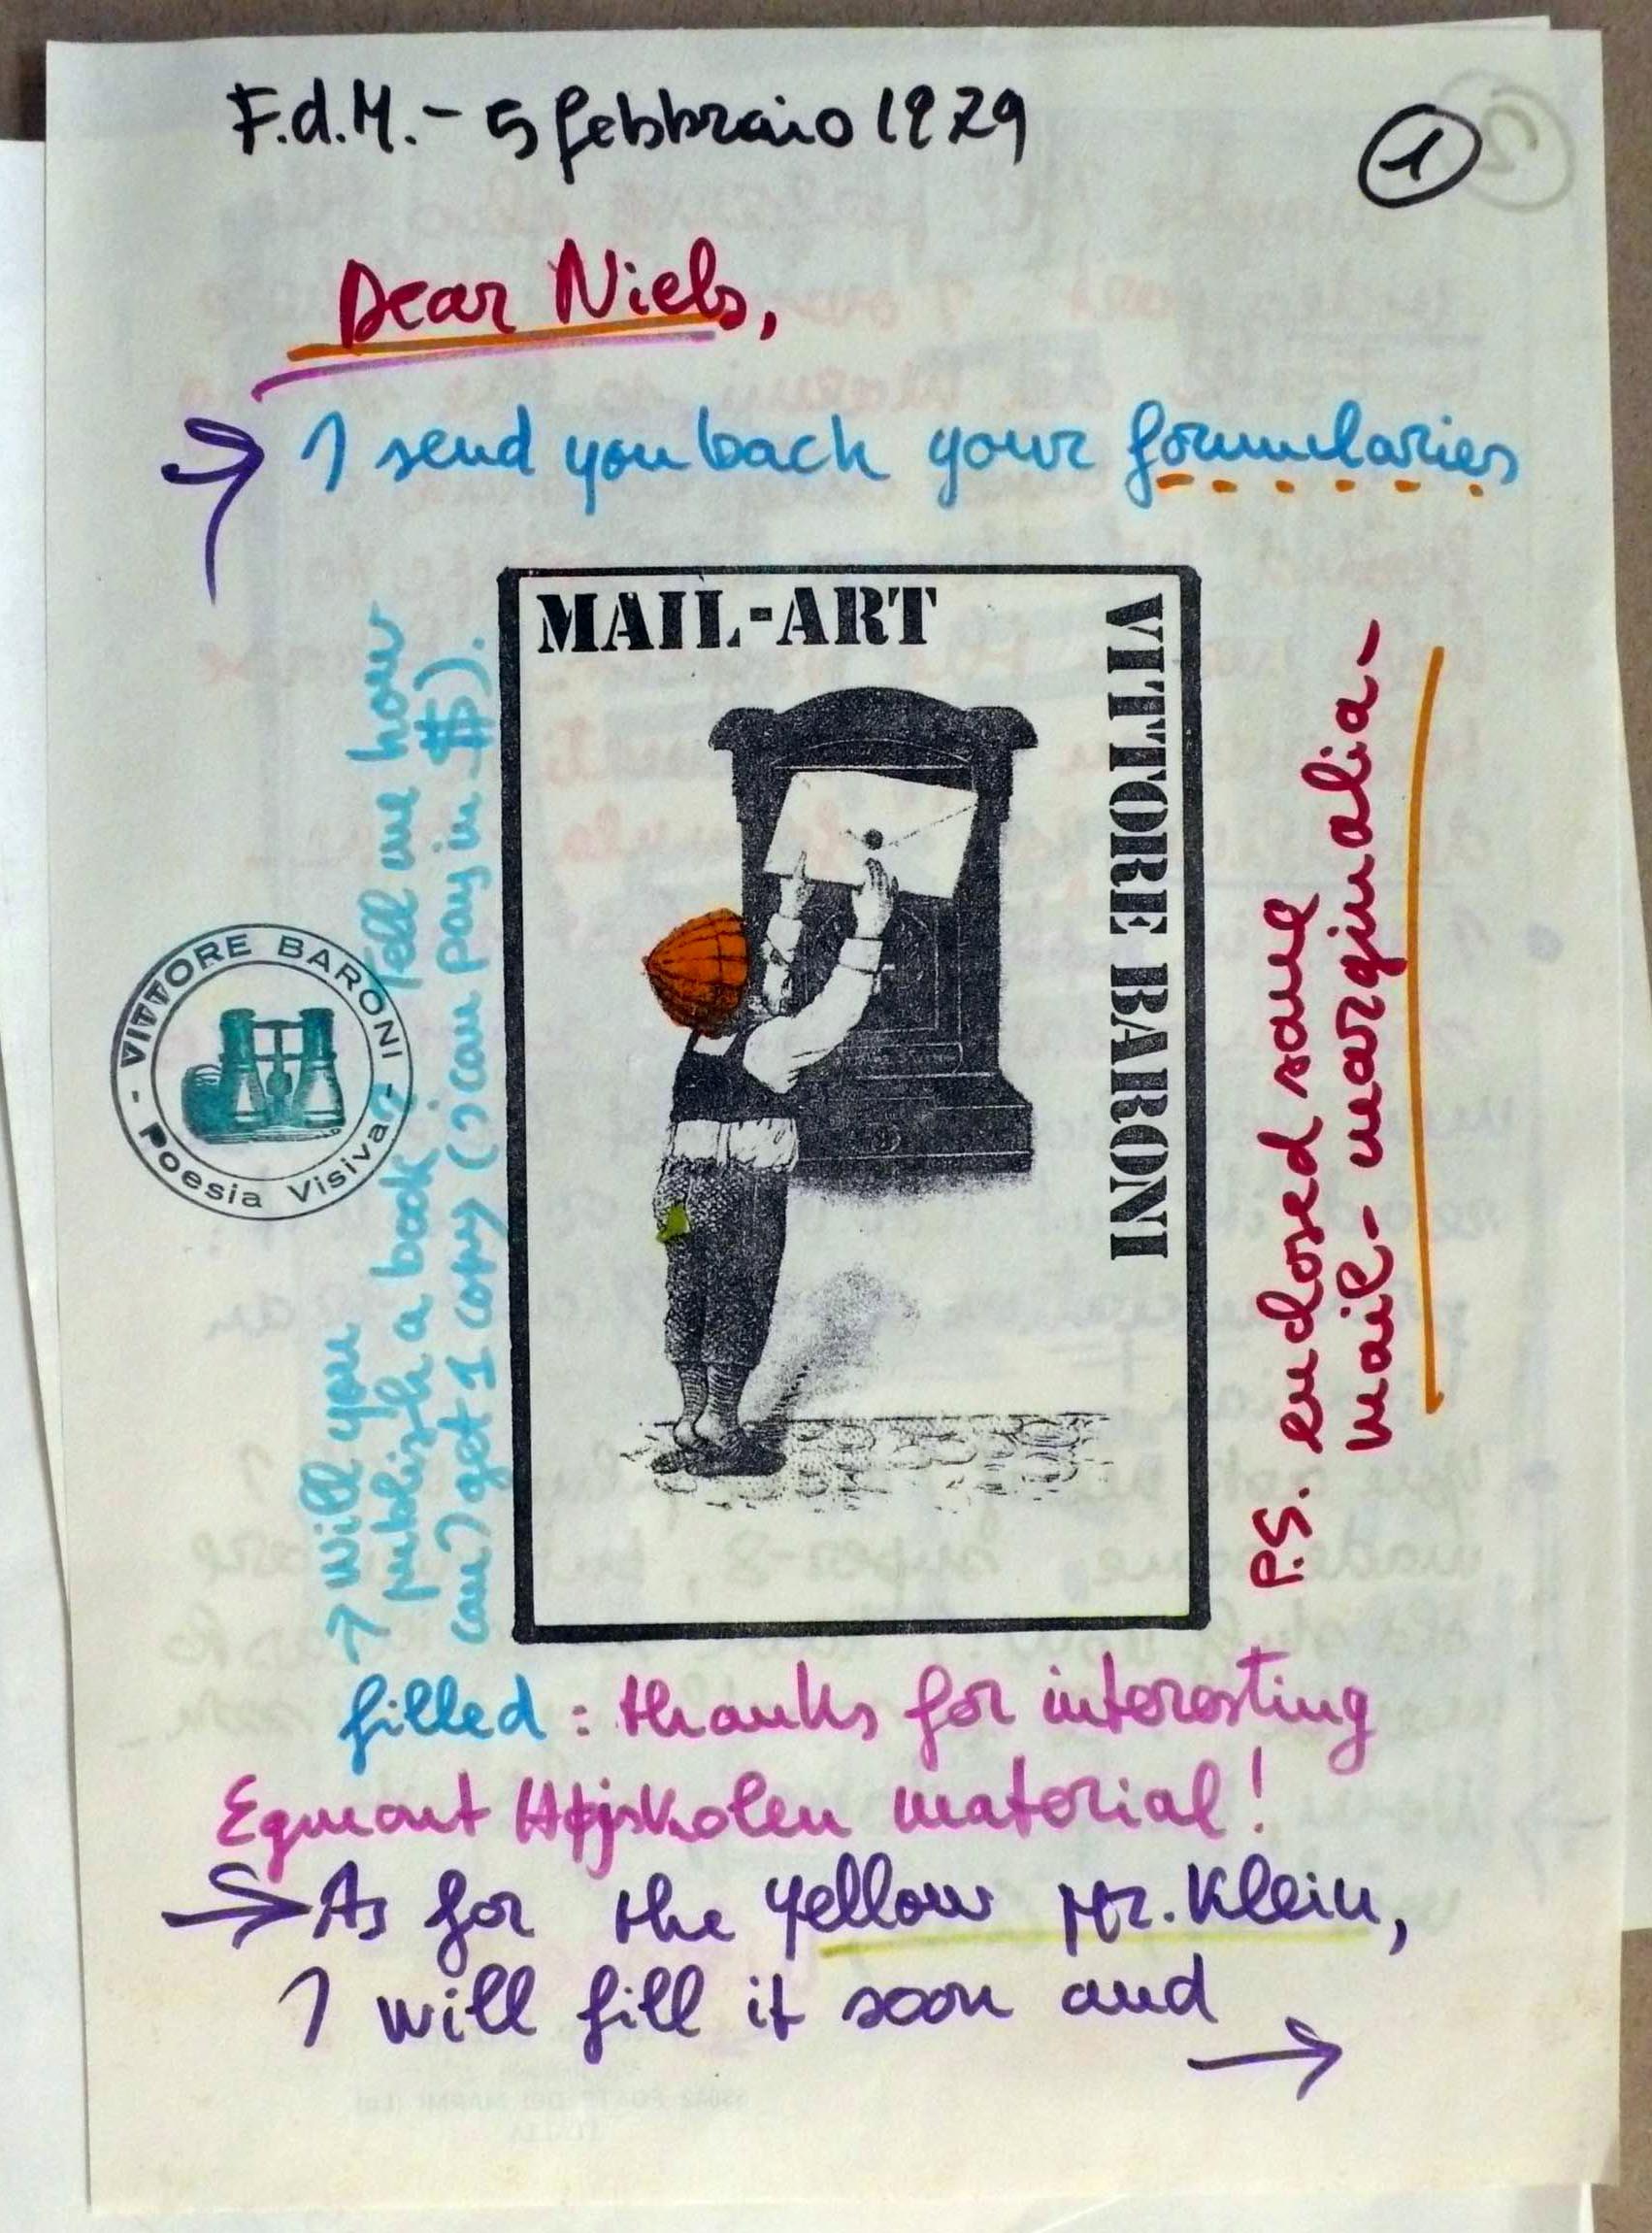 F.d.M. - 5 febbraio 1979
1
Dear Niels,
→ I send you back your formularies
MAIL-ART
VITTORE BARONI
- VITTORE BARONI - Poesia Visiva
→ Will you
publish a book? Tell me how
can I get 1 copy (I can pay in $).
P.S. enclosed some
mail-marginalia-
filled: thanks for interesting
Egmont Højskolen material!
→ As for the yellow Mr. Klein,
I will fill it soon and
→